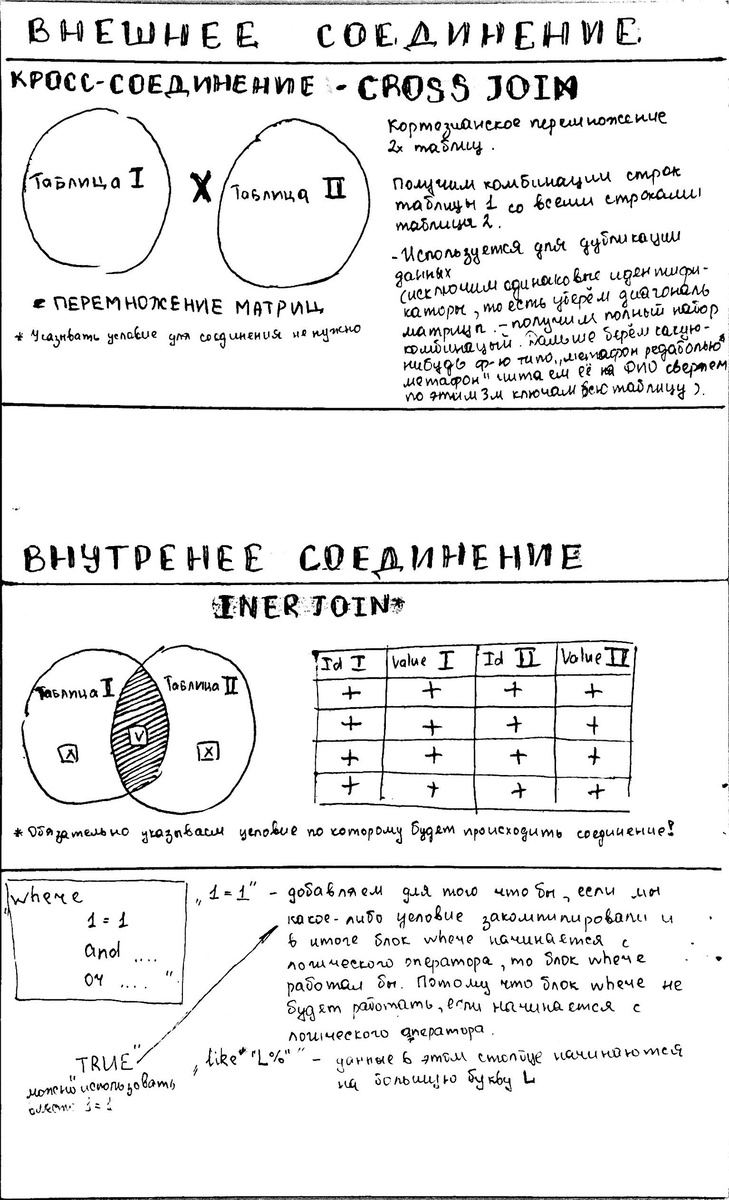 ВНЕШНЕЕ СОЕДИНЕНИЕ
КРОСС-СОЕДИНЕНИЕ - CROSS JOIN
Таблица I X Таблица II
= ПЕРЕМНОЖЕНИЕ МАТРИЦ
* Указывать условие для соединения не нужно
Кортозианское перемножение
2х таблиц.
Получим комбинации строк
таблицы 1 со всеми строками
таблици 2.
- Используется для дубликации
данных
(исключим одинаковые идентифи-
каторы, то есть уберём диагональ
матрици - получим полный набор
комбинацый. Дальше берём какую-
нибудь ф-ю типо „метафон редаболью
метафон" читаем её на ФИО свертем
по этим 3м ключам всю таблицу).
ВНУТРЕНЕЕ СОЕДИНЕНИЕ
INER JOIN*
Таблица I Таблица II
X V X
Id I Value I Id II Value II
+ + + +
+ + + +
+ + + +
+ + + +
* Обязательно указываем условие по которому будет происходить соединение!
„where
1 = 1
and ....
or .... "
„1=1" - добавляем для того что бы, если мы
какое-либо условие закомпилировали и
в итоге блок where начинается с
логического оператора, то блок where
работал бы. Потому что блок where не
будет работать, если начинается с
логического оператора.
TRUE"
можно использовать
1=1
„like "L%" " - данные в этом столбце начинаются
на большую букву L